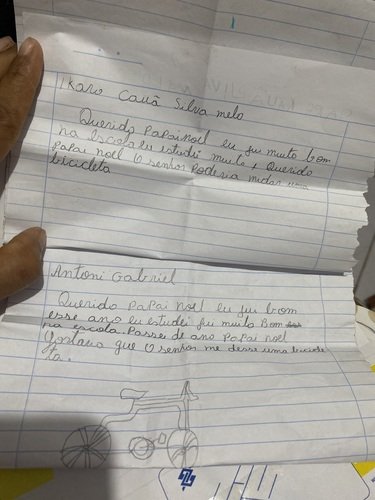 Ikaro Cauã Silva melo
Querido Papai noel eu fui muito bom
na Escola eu estudei muito, Querido
Papai noel O senhor Poderia midar uma
bicicleta
Antoni Gabriel
Querido Papai noel eu fui bom
esse ano eu estudei fui muito Bom
na escola. Passei de ano Papai noel
Gostaria que O senhor me desse uma bicicle
ta.